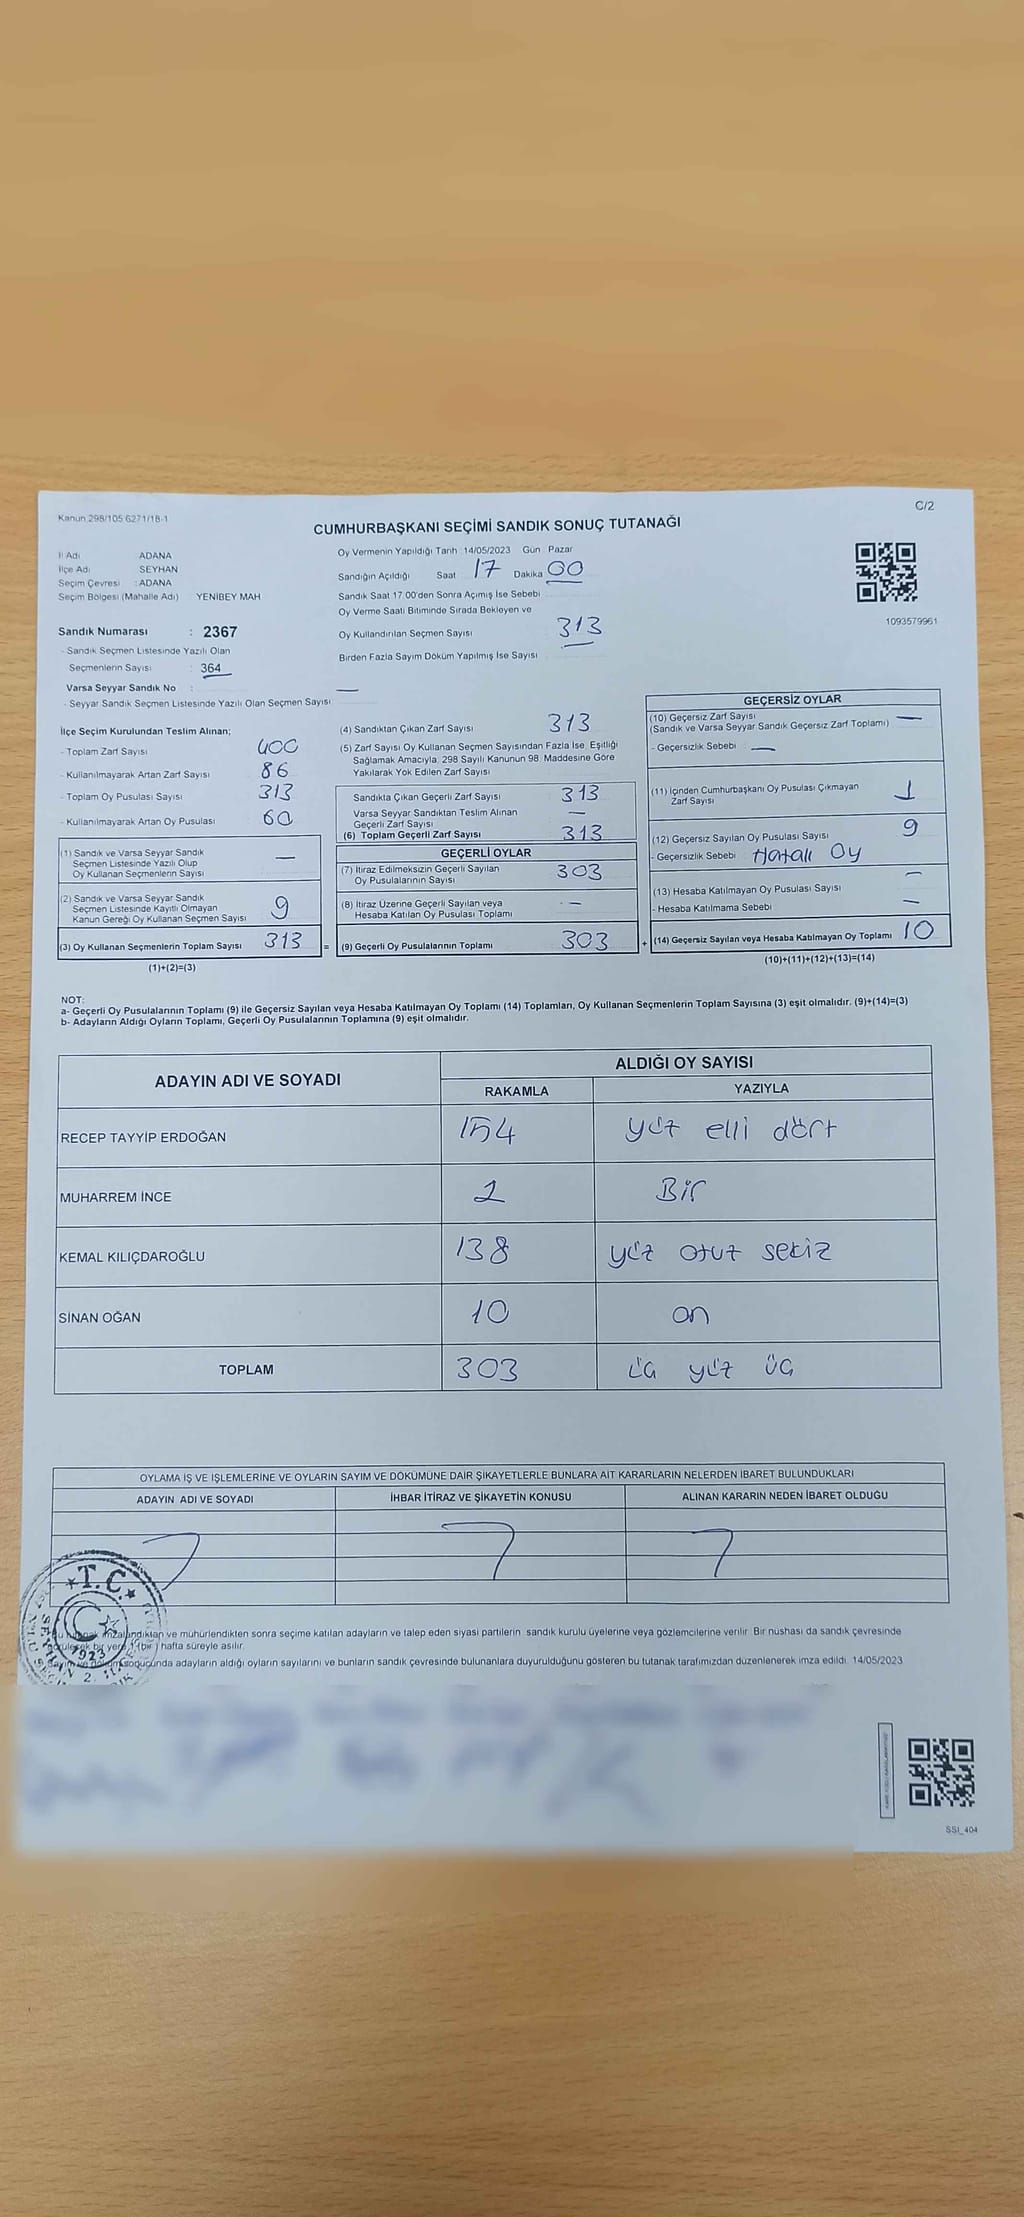 Kanun 298/105 6271/18-1
C/2
CUMHURBAŞKANI SEÇİMİ SANDIK SONUÇ TUTANAĞI
İl Adı ADANA
İlçe Adı SEYHAN
Seçim Çevresi : ADANA
Seçim Bölgesi (Mahalle Adı) YENİBEY MAH
Sandık Numarası : 2367
- Sandık Seçmen Listesinde Yazılı Olan
Seçmenlerin Sayısı : 364
Varsa Seyyar Sandık No : —
- Seyyar Sandık Seçmen Listesinde Yazılı Olan Seçmen Sayısı
Oy Vermenin Yapıldığı Tarih 14/05/2023 Gün Pazar
Sandığın Açıldığı Saat 17 Dakika 00
Sandık Saat 17 00'den Sonra Açımış İse Sebebi
Oy Verme Saati Bitiminde Sırada Bekleyen ve
Oy Kullandırılan Seçmen Sayısı 313
Birden Fazla Sayım Döküm Yapılmış İse Sayısı
1093579961
İlçe Seçim Kurulundan Teslim Alınan;
- Toplam Zarf Sayısı 400
- Kullanılmayarak Artan Zarf Sayısı 86
- Toplam Oy Pusulası Sayısı 313
- Kullanılmayarak Artan Oy Pusulası 60
(1) Sandık ve Varsa Seyyar Sandık
Seçmen Listesinde Yazılı Olup
Oy Kullanan Seçmenlerin Sayısı —
(2) Sandık ve Varsa Seyyar Sandık
Seçmen Listesinde Kayıtlı Olmayan
Kanun Gereği Oy Kullanan Seçmen Sayısı 9
(3) Oy Kullanan Seçmenlerin Toplam Sayısı 313 =
(1)+(2)=(3)
(4) Sandıktan Çıkan Zarf Sayısı 313
(5) Zarf Sayısı Oy Kullanan Seçmen Sayısından Fazla İse, Eşitliği
Sağlamak Amacıyla, 298 Sayılı Kanunun 98. Maddesine Göre
Yakılarak Yok Edilen Zarf Sayısı
Sandıkta Çıkan Geçerli Zarf Sayısı 313
Varsa Seyyar Sandıktan Teslim Alınan
Geçerli Zarf Sayısı —
(6) Toplam Geçerli Zarf Sayısı 313
GEÇERLİ OYLAR
(7) İtiraz Edilmeksizin Geçerli Sayılan
Oy Pusulalarının Sayısı 303
(8) İtiraz Üzerine Geçerli Sayılan veya
Hesaba Katılan Oy Pusulası Toplamı —
(9) Geçerli Oy Pusulalarının Toplamı 303 +
GEÇERSİZ OYLAR
(10) Geçersiz Zarf Sayısı —
(Sandık ve Varsa Seyyar Sandık Geçersiz Zarf Toplamı)
- Geçersizlik Sebebi —
(11) İçinden Cumhurbaşkanı Oy Pusulası Çıkmayan
Zarf Sayısı 1
(12) Geçersiz Sayılan Oy Pusulası Sayısı 9
- Geçersizlik Sebebi Hatalı Oy
(13) Hesaba Katılmayan Oy Pusulası Sayısı —
- Hesaba Katılmama Sebebi —
(14) Geçersiz Sayılan veya Hesaba Katılmayan Oy Toplamı 10
(10)+(11)+(12)+(13)=(14)
NOT:
a- Geçerli Oy Pusulalarının Toplamı (9) ile Geçersiz Sayılan veya Hesaba Katılmayan Oy Toplamı (14) Toplamları, Oy Kullanan Seçmenlerin Toplam Sayısına (3) eşit olmalıdır. (9)+(14)=(3)
b- Adayların Aldığı Oyların Toplamı, Geçerli Oy Pusulalarının Toplamına (9) eşit olmalıdır.
ADAYIN ADI VE SOYADI ALDIĞI OY SAYISI
RAKAMLA YAZIYLA
RECEP TAYYİP ERDOĞAN 154 yüz elli dört
MUHARREM İNCE 1 Bir
KEMAL KILIÇDAROĞLU 138 yüz otuz sekiz
SİNAN OĞAN 10 on
TOPLAM 303 üç yüz üç
OYLAMA İŞ VE İŞLEMLERİNE VE OYLARIN SAYIM VE DÖKÜMÜNE DAİR ŞİKAYETLERLE BUNLARA AİT KARARLARIN NELERDEN İBARET BULUNDUKLARI
ADAYIN ADI VE SOYADI İHBAR İTİRAZ VE ŞİKAYETİN KONUSU ALINAN KARARIN NEDEN İBARET OLDUĞU
T.C.
1923
2.
ve mühürlendikten sonra seçime katılan adayların ve talep eden siyasi partilerin sandık kurulu üyelerine veya gözlemcilerine verilir. Bir nüshası da sandık çevresinde
bir yere 1 (bir) hafta süreyle asılır.
sonucunda adayların aldığı oyların sayılarını ve bunların sandık çevresinde bulunanlara duyurulduğunu gösteren bu tutanak tarafımızdan düzenlenerek imza edildi. 14/05/2023
SSI_404